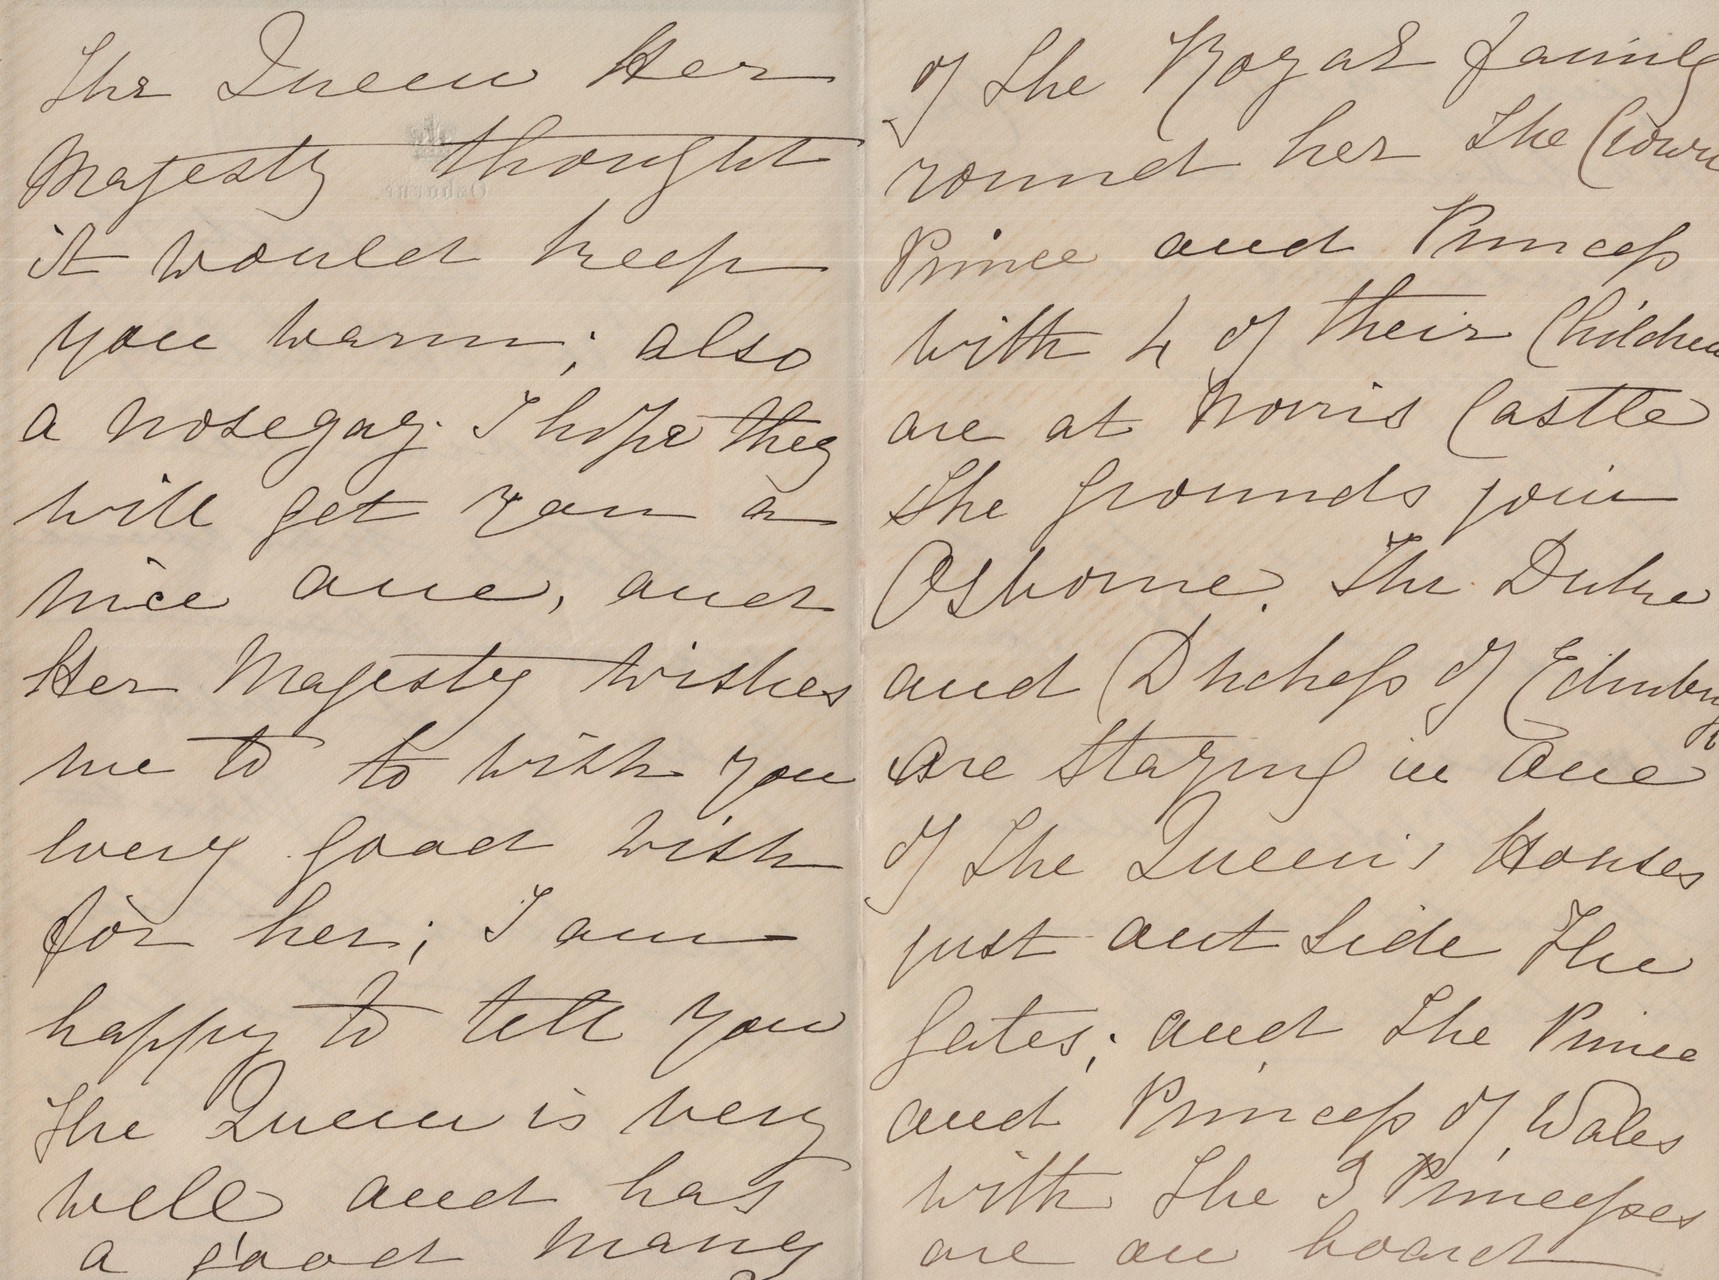 The Queen Her
Majesty thought
it would keep
you warm; also
a nosegay. I hope they
will get you a
nice one, and
Her Majesty wishes
me to to wish you
every good wish
for her; I am
happy to tell you
The Queen is very
well and has
a good many
of the Royal family
round her the Crown
Prince and Princess
with 4 of their Children
are at Norris Castle
the grounds join
Osborne. The Duke
and Duchess of Edinburgh
are staying in one
of the Queen's Houses
just out side the
gates; and the Prince
and Princess of Wales
with the 3 Princesses
are on board